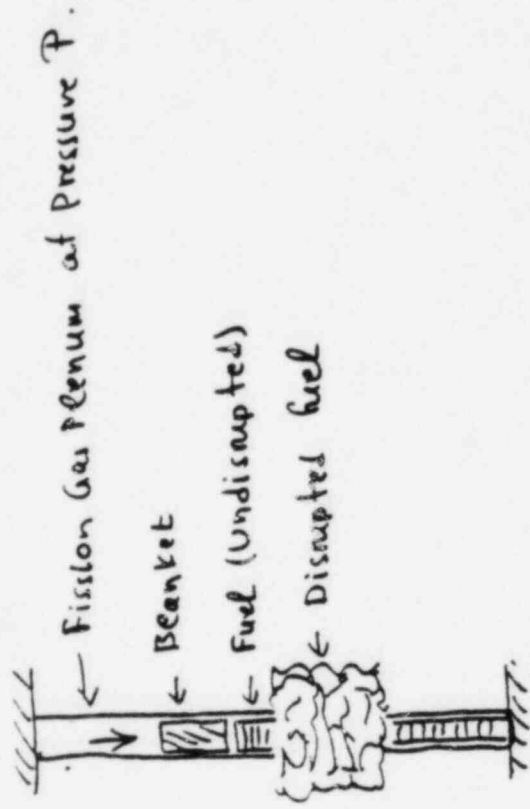 Fission Gas Plenum at Pressure P.
Blanket
Fuel (Undisrupted)
Disrupted fuel